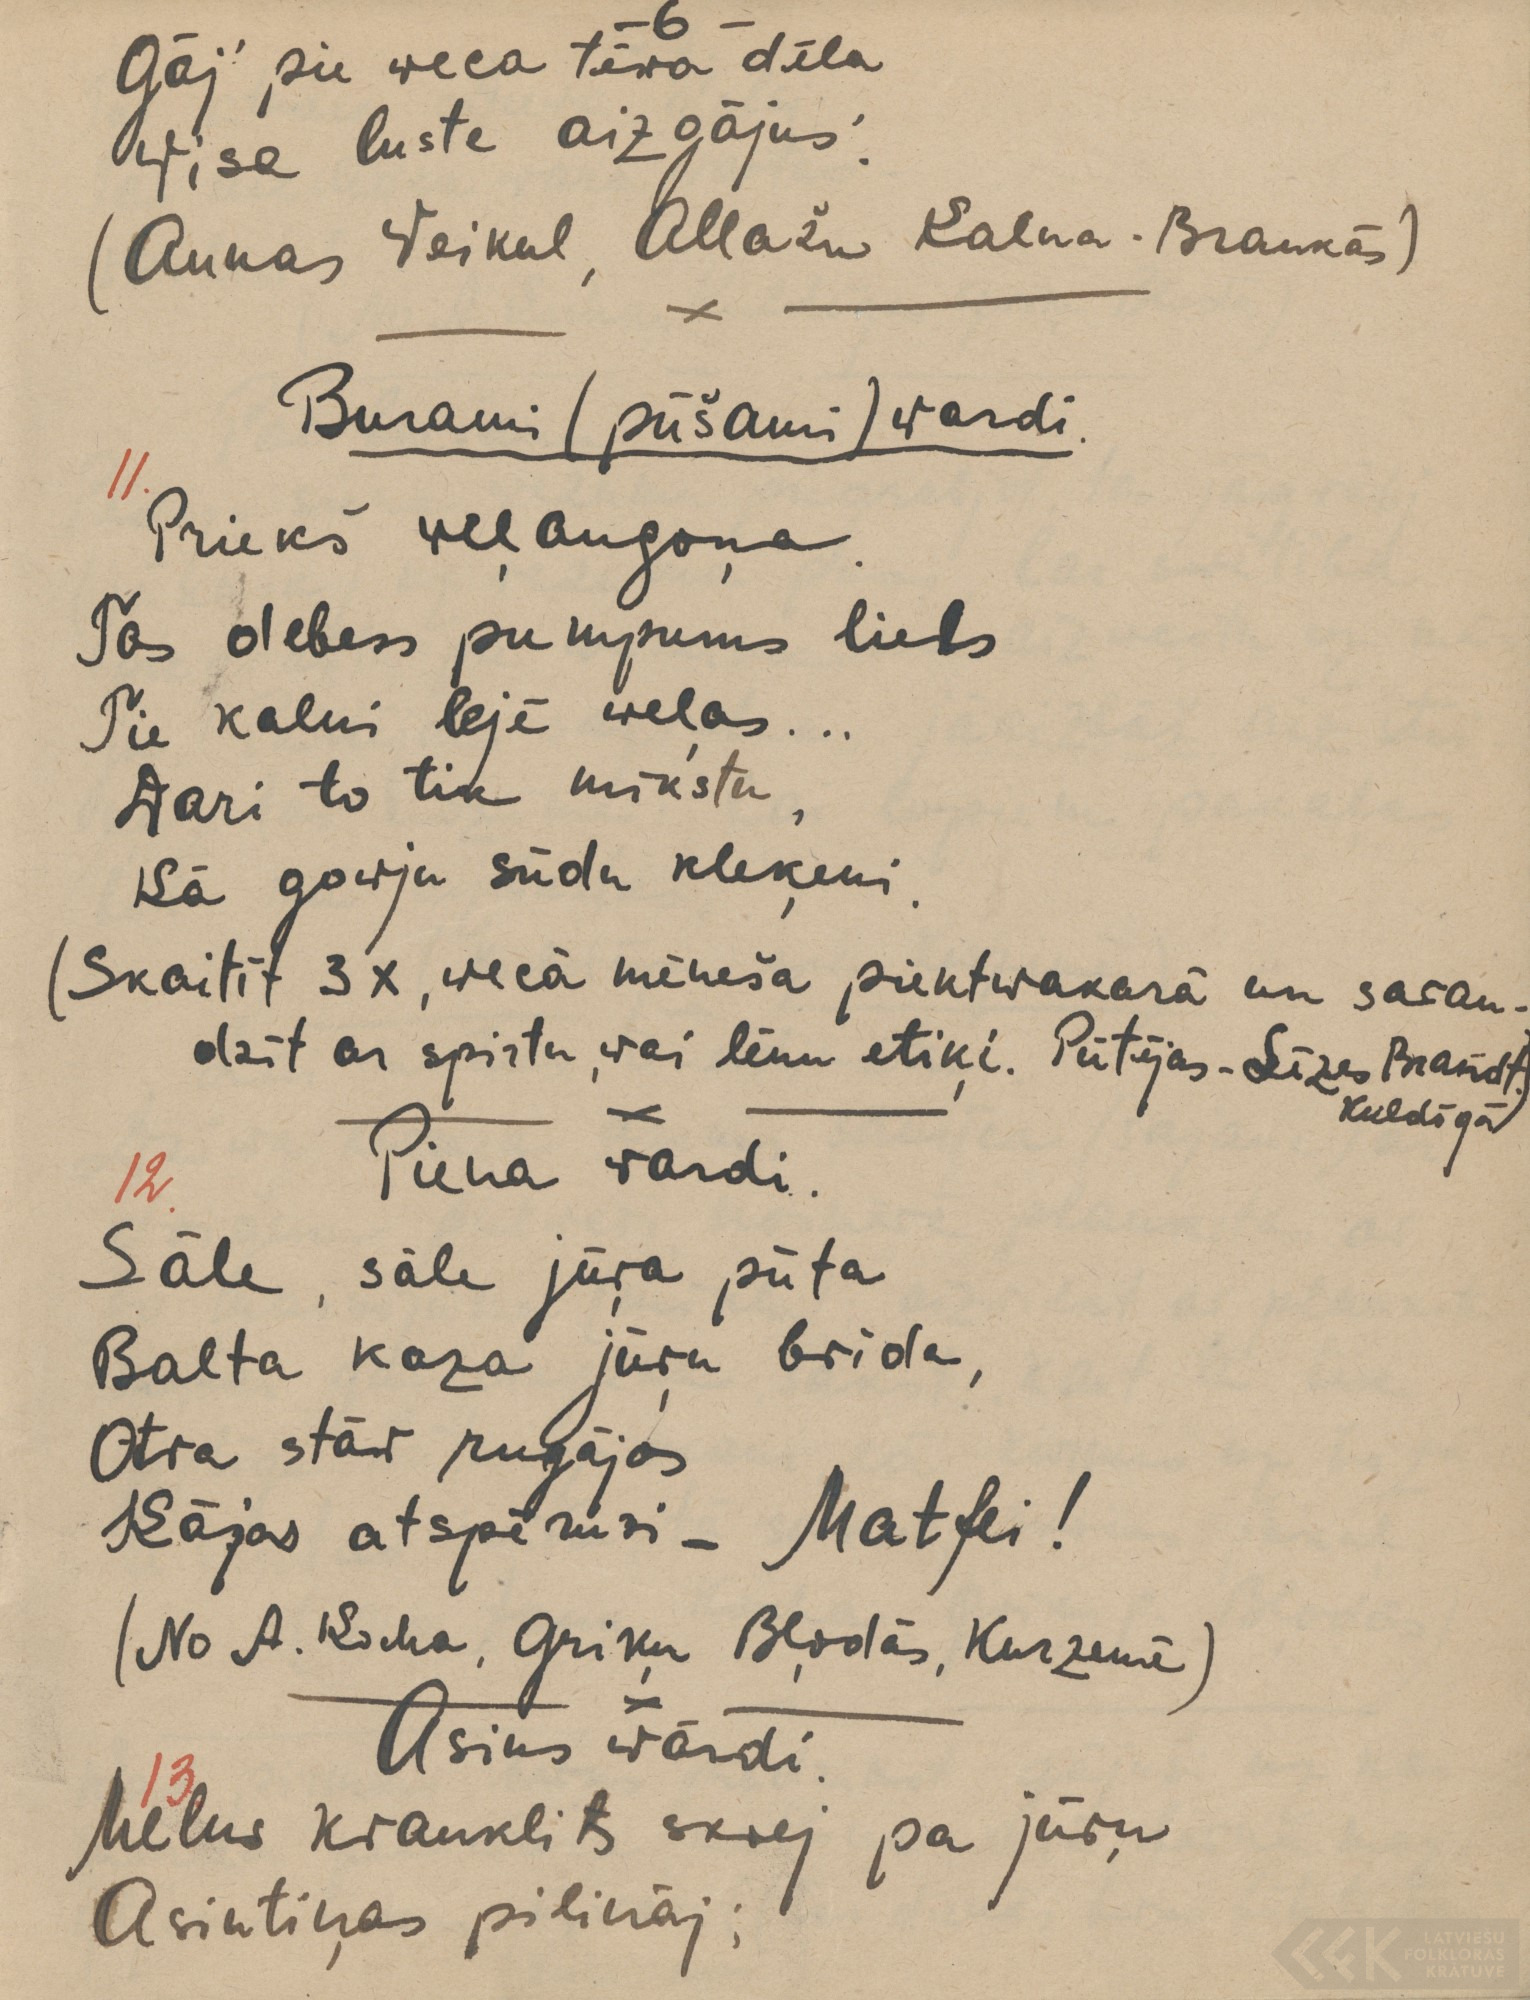 – 6 –
Gāj' pie weca tēwa dēla
Wisa luste aizgājus'.
(Annas Weikul, Allažu Kalna-Brankās)
×
Burami (pūšami) wardi.
11.
Priekš weļangoņa.
Tas debess pumpums liels
Tie kalni lejē weļas...
Dari to tik mikstu,
Kā gowju sūdu kleķeni.
(Skaitīt 3x, wecā mēneša piektwakarā un saran-
dzīt ar spirtu, wai lēnu etiķi. Pūtējas - Līzes Brandt.
Kuldīgā)
×
12.
Piena wardi.
Sāle, sāle jūŗa pūta
Balta kaza jūŗu brida,
Otra stāw rugājos
Kājas atspērusi – Matfei!
(No A. Kocha, Griķu Bļodās, Kurzemē)
×
Asins wārdi.
13.
Melns krauklits skrej pa jūŗu
Asintiņas pilināj;
LATVIEŠU
FOLKLORAS
KRĀTUVE